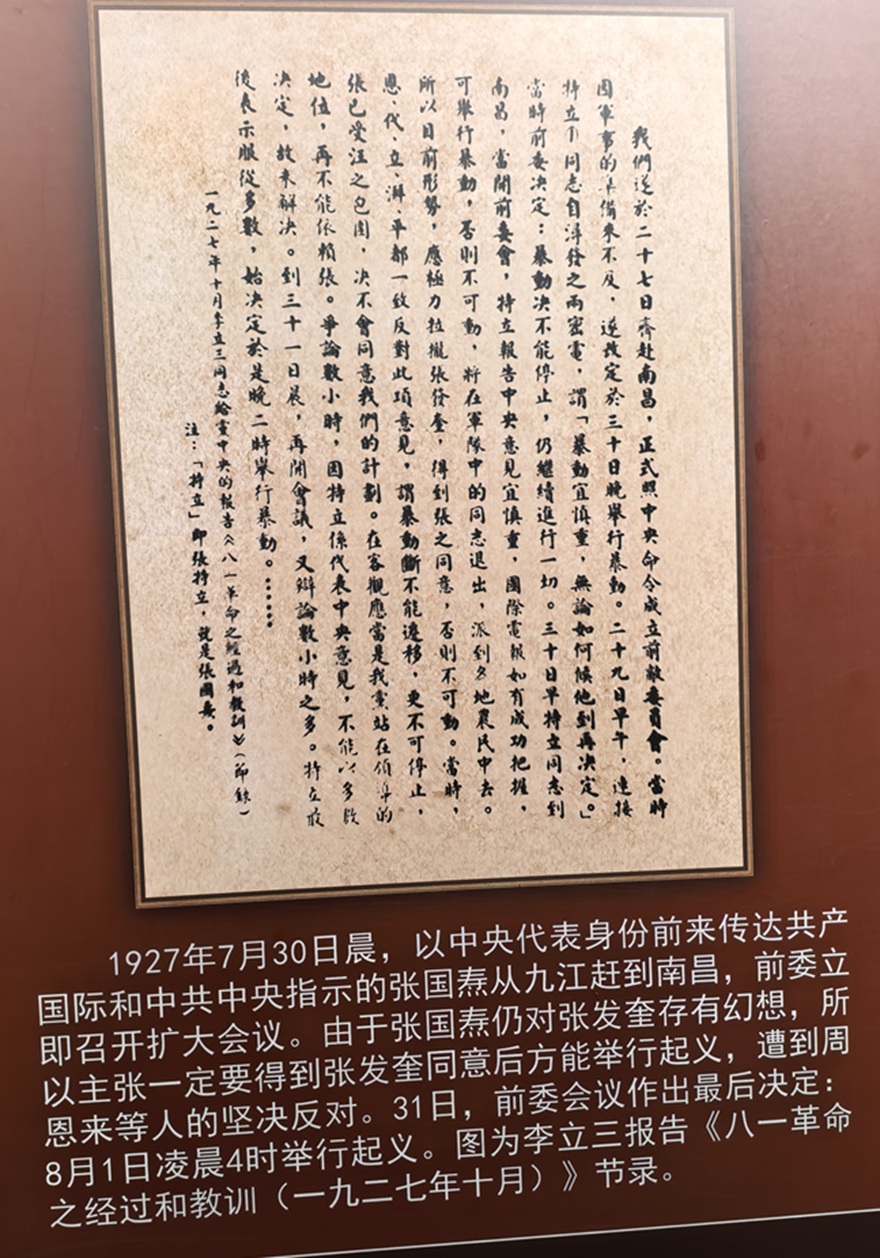 我們遂於二十七日齊赴南昌，正式照中央命令成立前敵委員會。當時
因軍事的準備來不及，遂改定於三十日晚舉行暴動。二十九日早午，連接
特立同志自潯發之兩密電，謂「暴動宜慎重，無論如何候他到再決定。」
當時前委决定：暴動决不能停止，仍繼續進行一切。三十日早特立同志到
南昌，當開前委會，特立報告中央意見宜慎重，國際電報如有成功把握，
可舉行暴動，否則不可動，將在軍隊中的同志退出，派到各地農民中去。
所以目前形勢，應極力拉攏張發奎，得到張之同意，否則不可動。當時，
恩、代、立、湃、平都一致反對此項意見，謂暴動斷不能遷移，更不可停止，
張已受汪之包圍，决不會同意我們的計劃。在客觀應當是我黨站在領導的
地位，再不能依賴張。爭論數小時，因特立係代表中央意見，不能以多數
决定，故未解决。到三十一日晨，再開會議，又辯論數小時之多。特立最
後表示服從多數，始决定於是晚二時舉行暴動。……
一九二七年十月李立三同志給黨中央的報告《八一革命之經過和教訓》（節錄）
注：「特立」即張特立，就是張國燾。
1927年7月30日晨，以中央代表身份前来传达共产
国际和中共中央指示的张国焘从九江赶到南昌，前委立
即召开扩大会议。由于张国焘仍对张发奎存有幻想，所
以主张一定要得到张发奎同意后方能举行起义，遭到周
恩来等人的坚决反对。31日，前委会议作出最后决定：
8月1日凌晨4时举行起义。图为李立三报告《八一革命
之经过和教训（一九二七年十月）》节录。